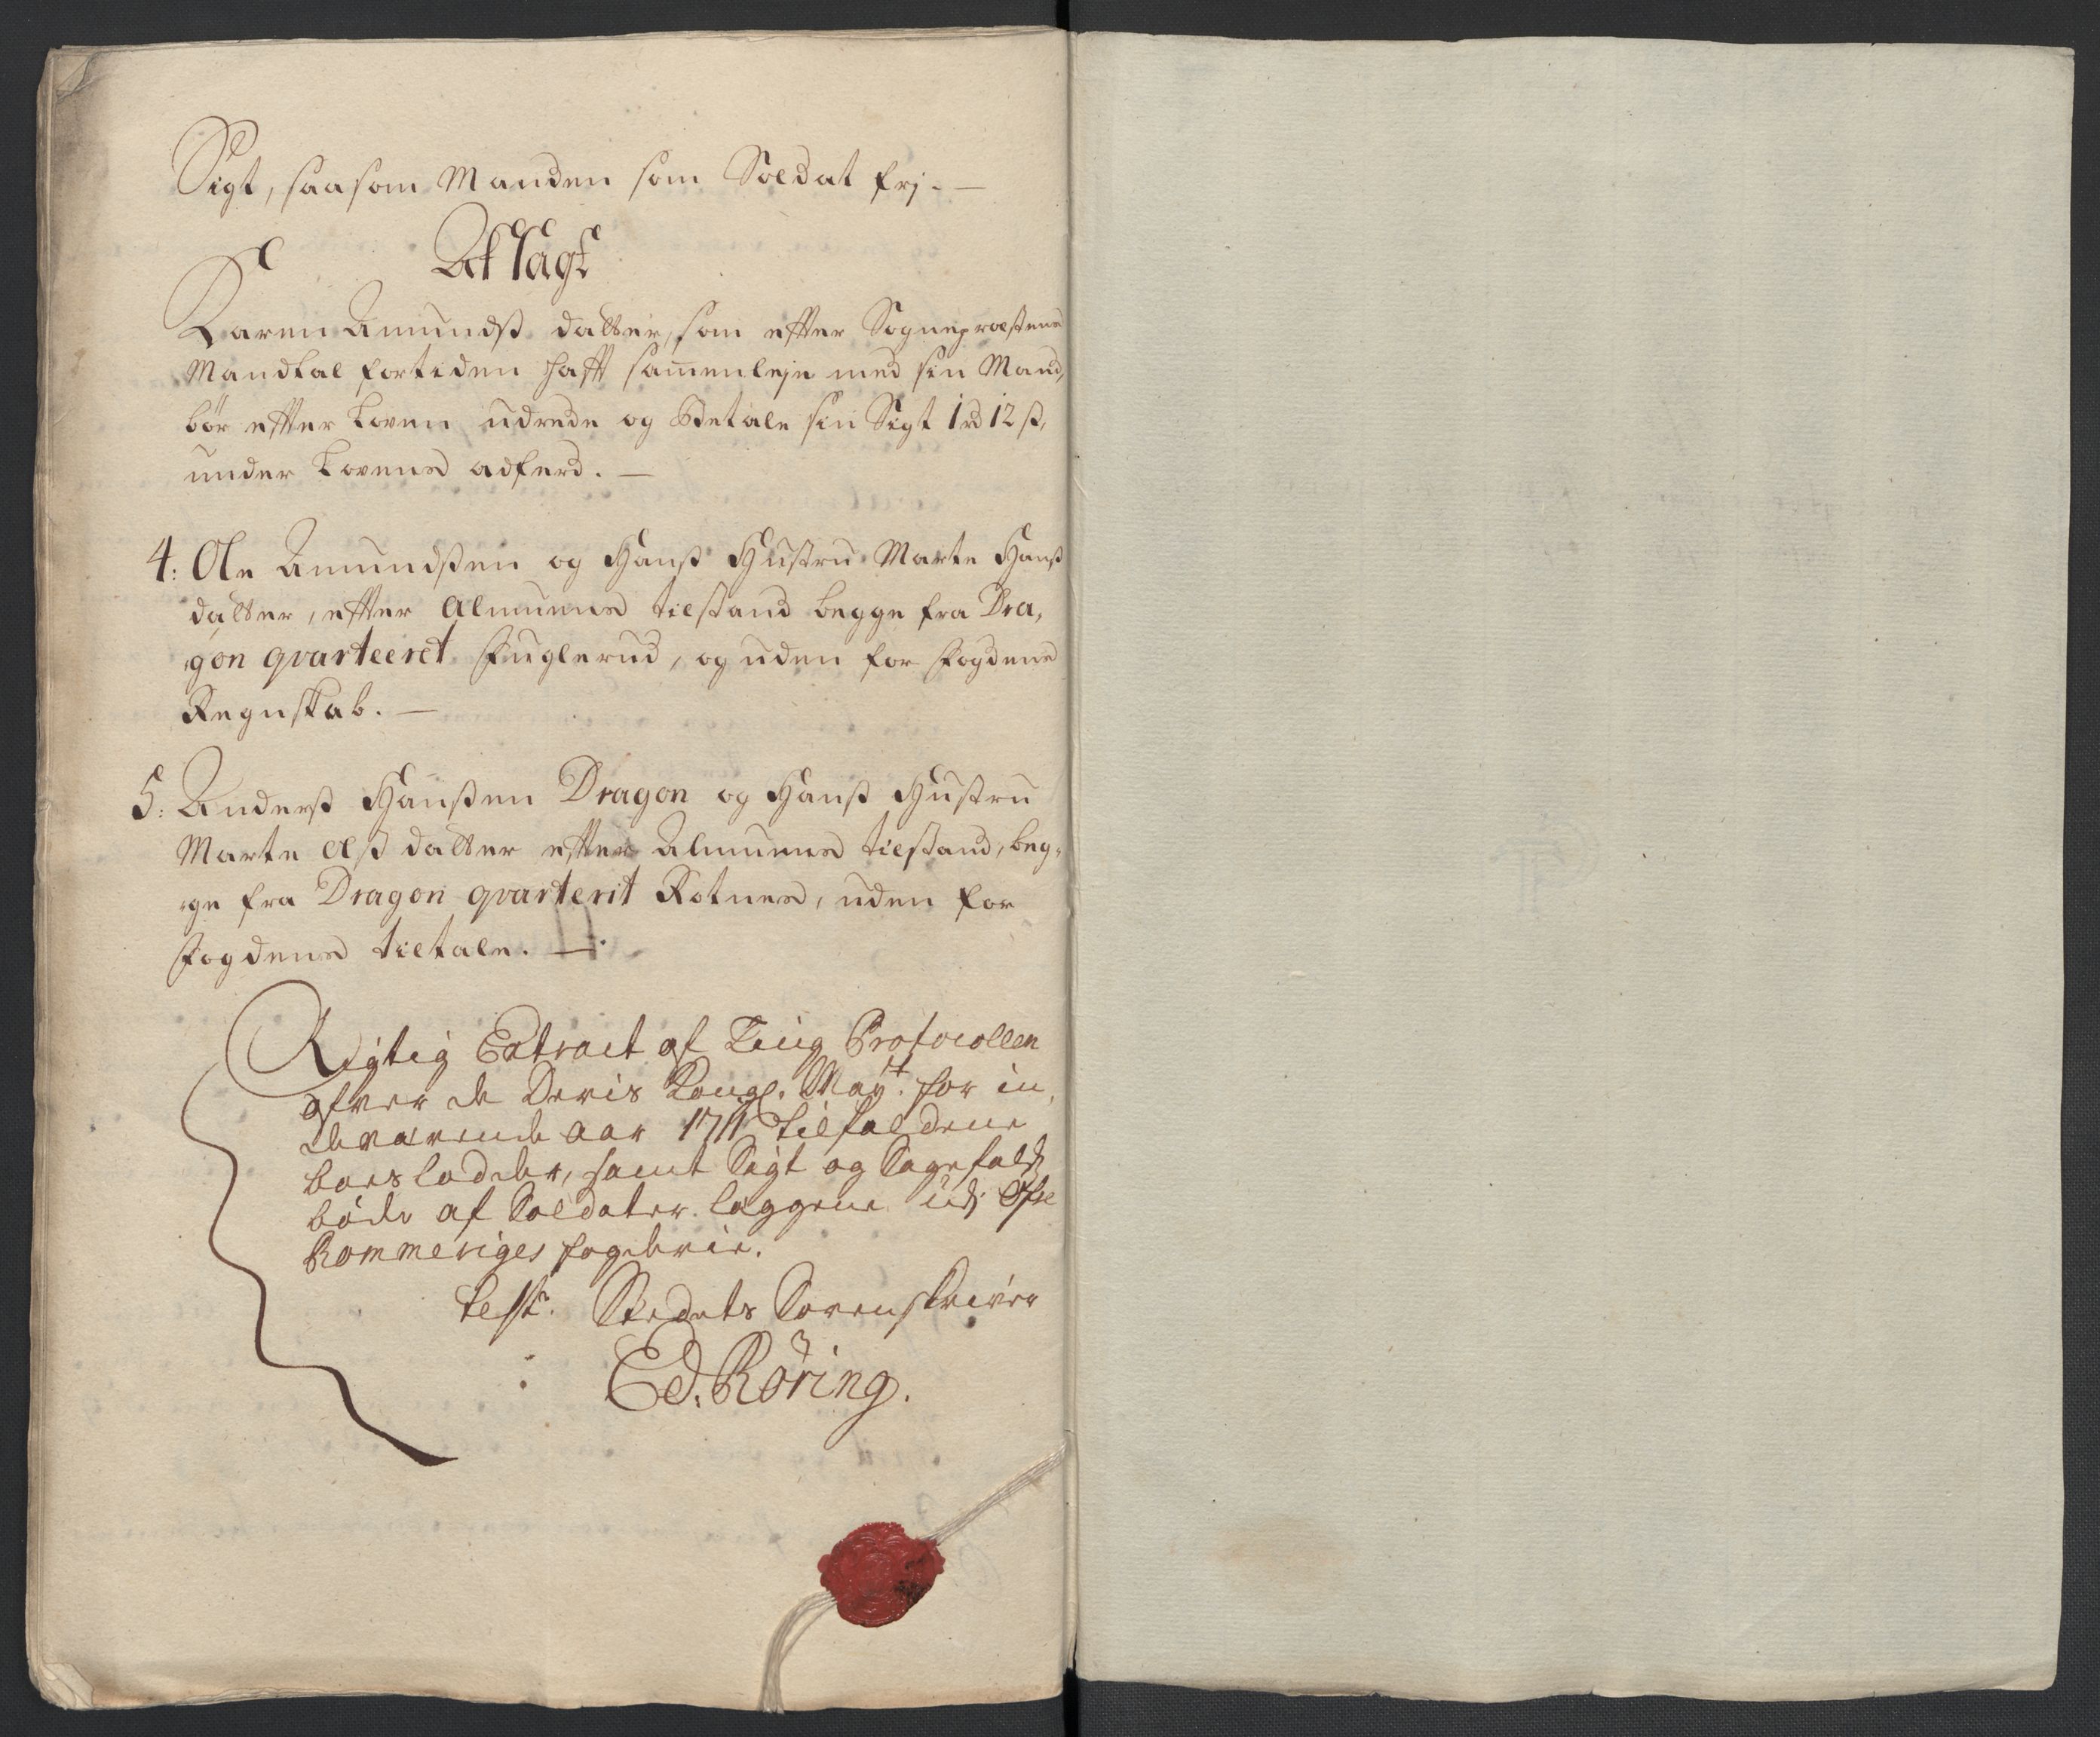 Sigt, saasom Manden som Soldat frj. —
Afsagt
Karen Amundß datter, som efter Sogneproestens
Mandtal fortiden hafft sammenleje med sin Mand,
bør effter Loven udrede og Betale sin Sigt 1 rd 12 ß,
under Lovens adferd. —
4: Ole Amundßen og Hanß Hustru Marte Hanß
datter, effter Almuens tilstand begge fra Dra,
gon qvarteeret Fuglerud, og uden for Fogdens
Regnskab. —
5: Anderß Hanßen Dragon og Hanß Hustru
Marte Olß datter effter Almuens tilstand, beg,
ge fra Dragon qvarterit Rotnes, uden for
Fogdens tiltale. —
Rigtig Extract af Ting Protocollen
ofver de Deris Kongl. Mayt. for in,
deværende aar 1711 tilfaldene
boeslodder, samt Sigt og Sagefalds
bøde af Soldater læggene udj Øfre
Rommeriges fogderie.
Test. Stedets Sorenskriver
Ed. Röring.